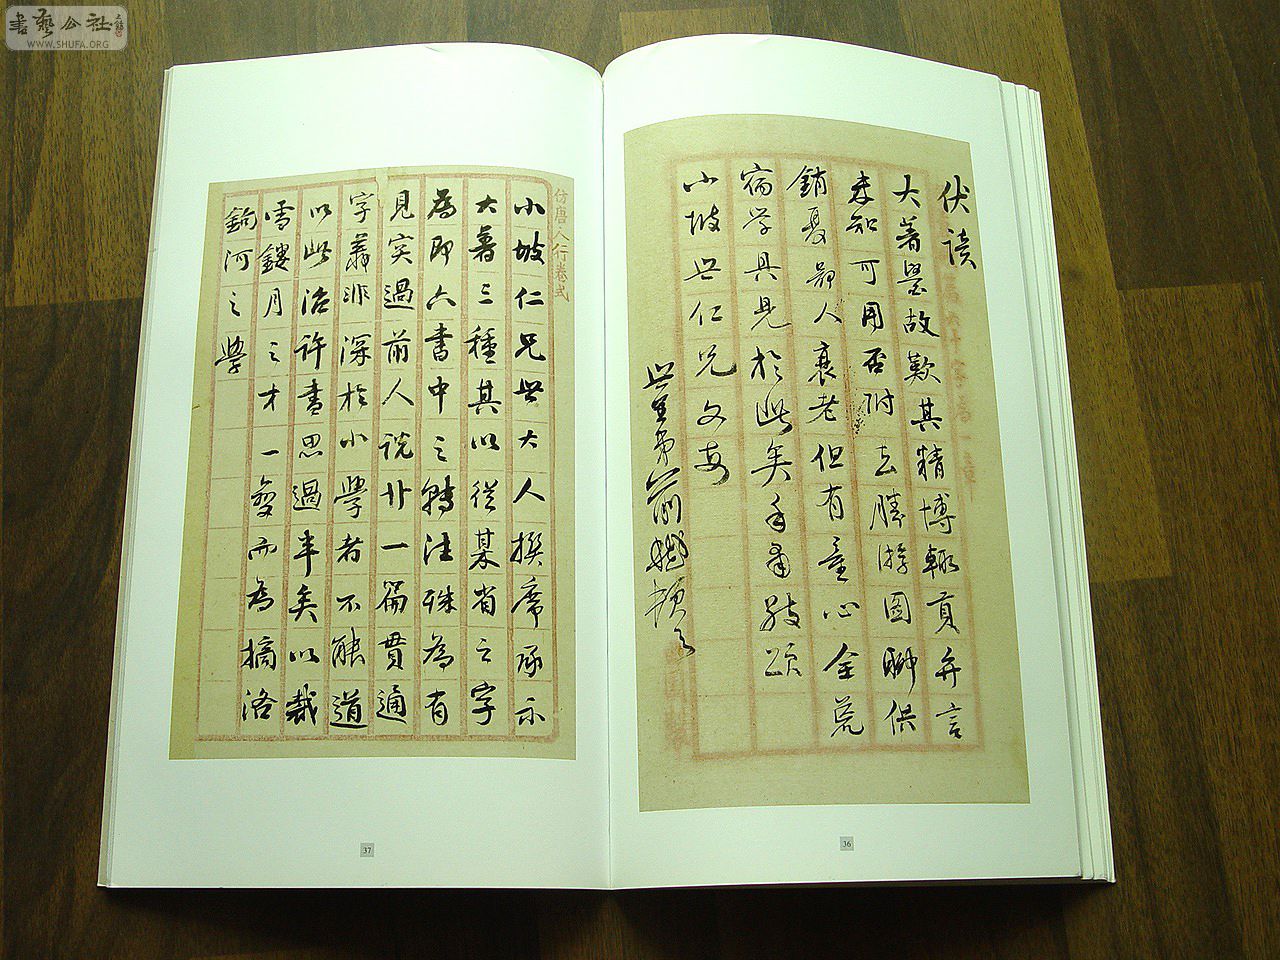 書藝公社
WWW.SHUFA.ORG
伏讀
大著墨故歎其精博輒夏弁言
未知可用否附去勝游圖聊供
銷夏鄙人衰老但有童心全荒
宿学具見於此矣手肅敬頌
小坡世仁兄文安
世
36
仿唐人行卷式
小坡仁兄世大人撰席承示
大著三種其以從某省之字
為即六書中之轉注殊為有
見实過前人說廿一篇貫通
字義非深於小學者不能道
以此治許書思過半矣以裁
雪鏤月之才一變而為摘洛
鉤河之學
37